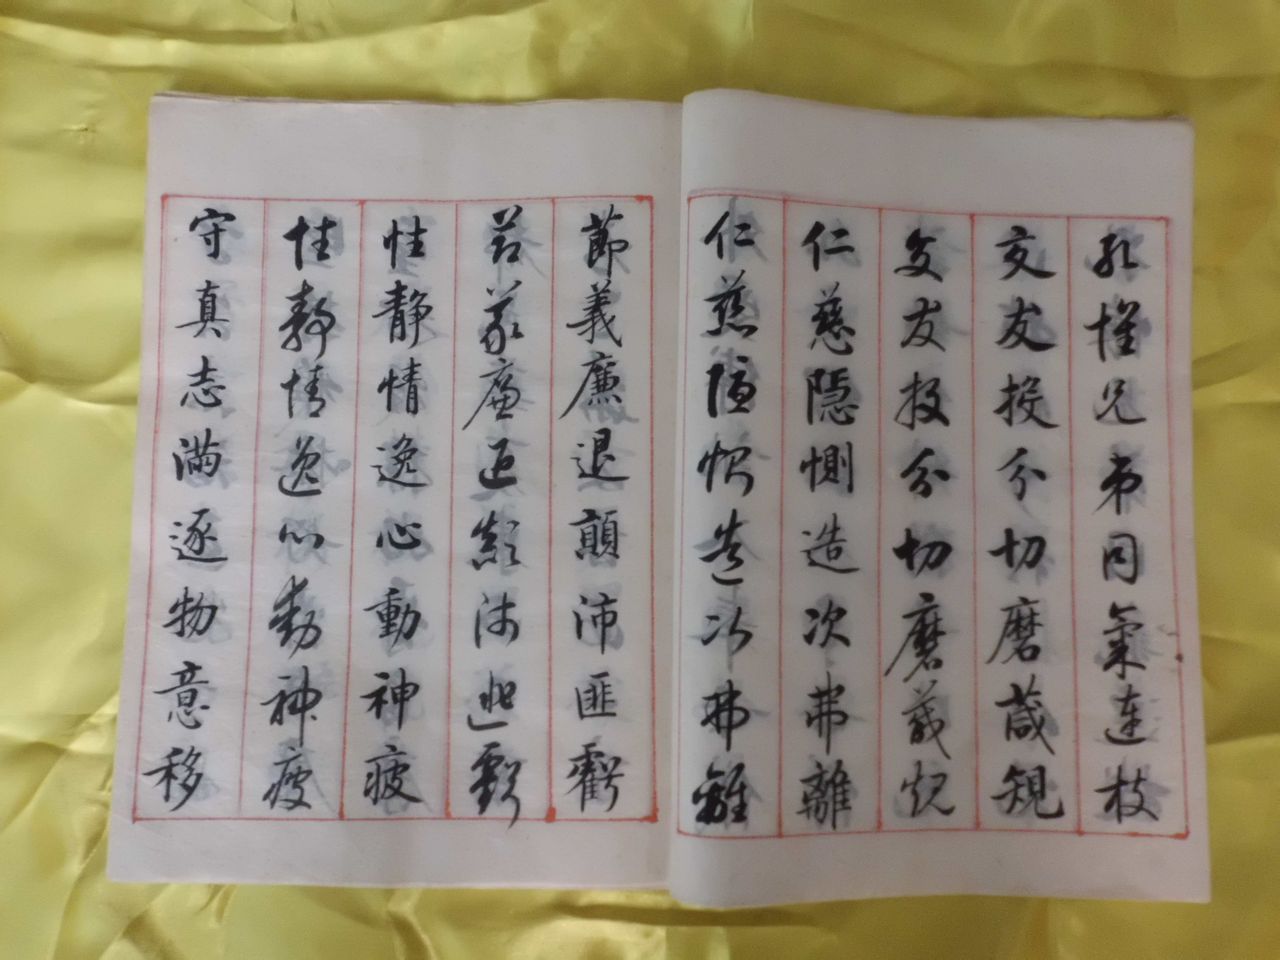 孔懷兄弟同氣連枝
交友投分切磨箴規
交友投分切磨箴規
仁慈隱惻造次弗離
仁慈隱惻造次弗離
節義廉退顛沛匪虧
節義廉退顛沛匪虧
性靜情逸心動神疲
性靜情逸心動神疲
守真志滿逐物意移